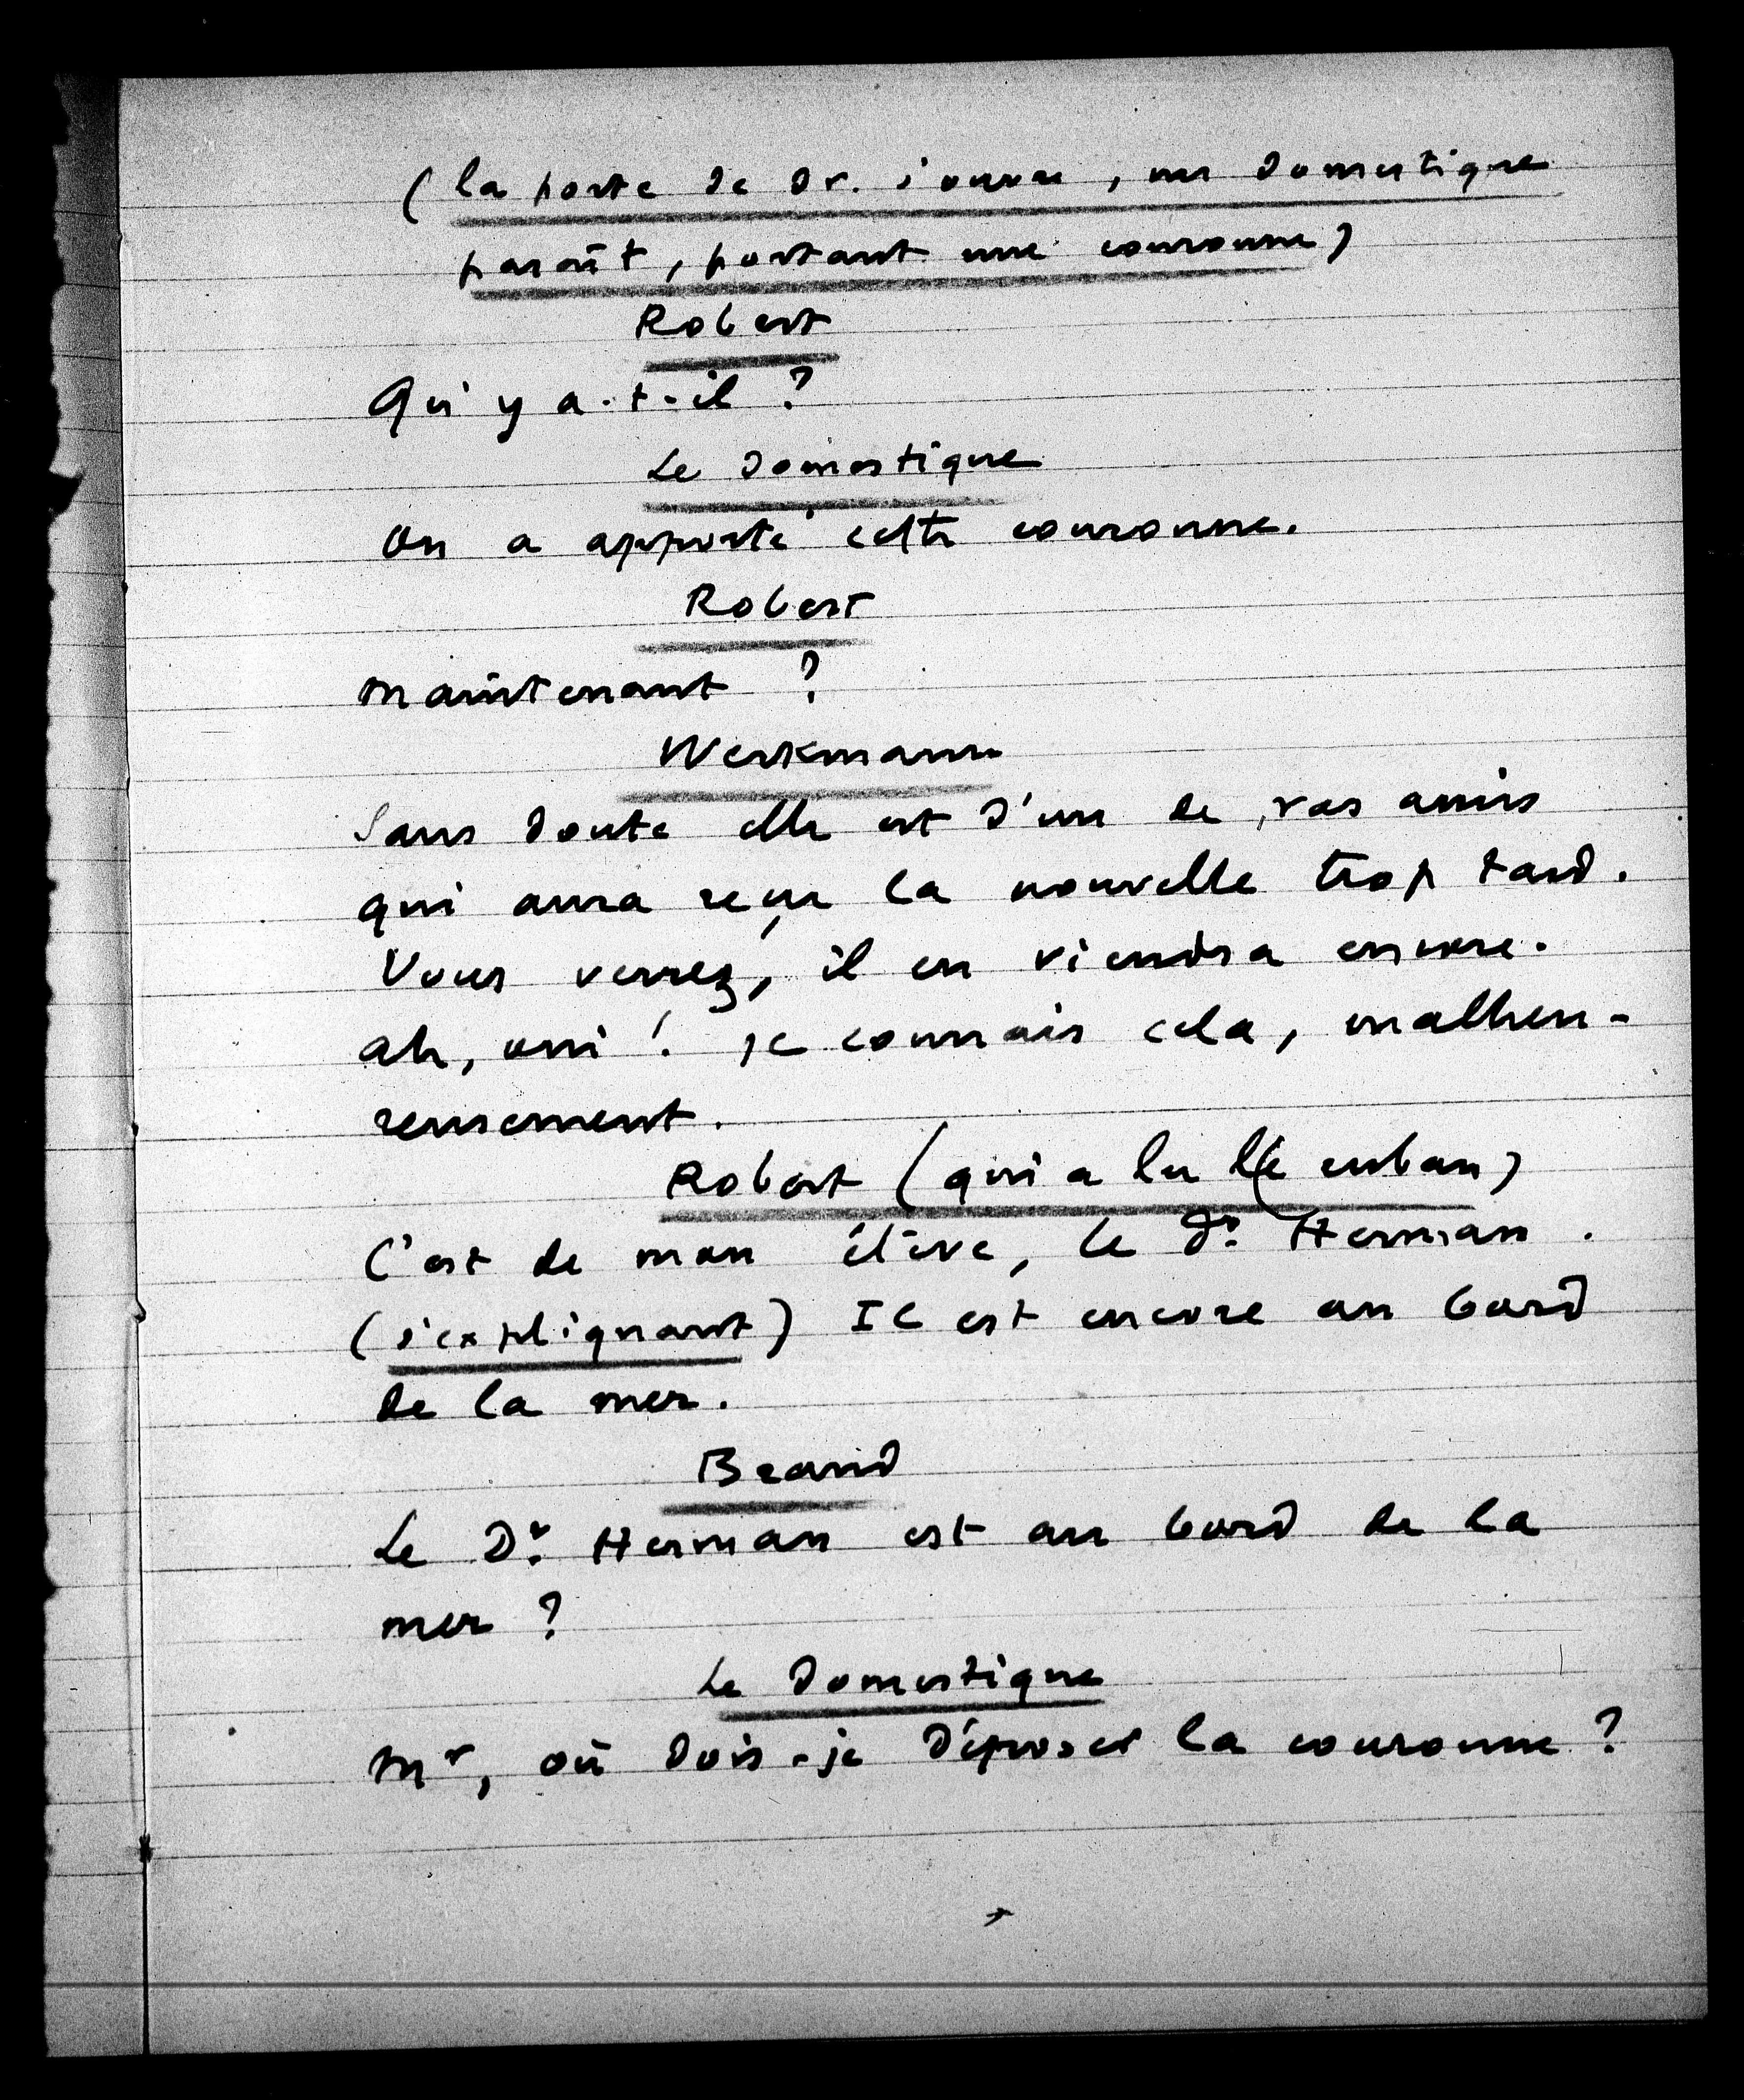 (la porte de dr. s'ouvre, un domestique
paraît, portant une couronne)
Robert
Qu'y a-t-il ?
Le domestique
On a apporté cette couronne.
Robert
Maintenant ?
Werkmann
Sans doute elle est d'un de vos amis
qui aura reçu la nouvelle trop tard.
Vous verrez, il en viendra encore.
ah, oui ! je connais cela, malheu-
reusement.
Robert (qui a lu le ruban)
C'est de mon élève, le Dr. Herman.
(s'expliquant) Il est encore au bord
de la mer.
Brand
Le Dr. Herman est au bord de la
mer ?
Le Domestique
Mr, où dois-je déposer la couronne ?